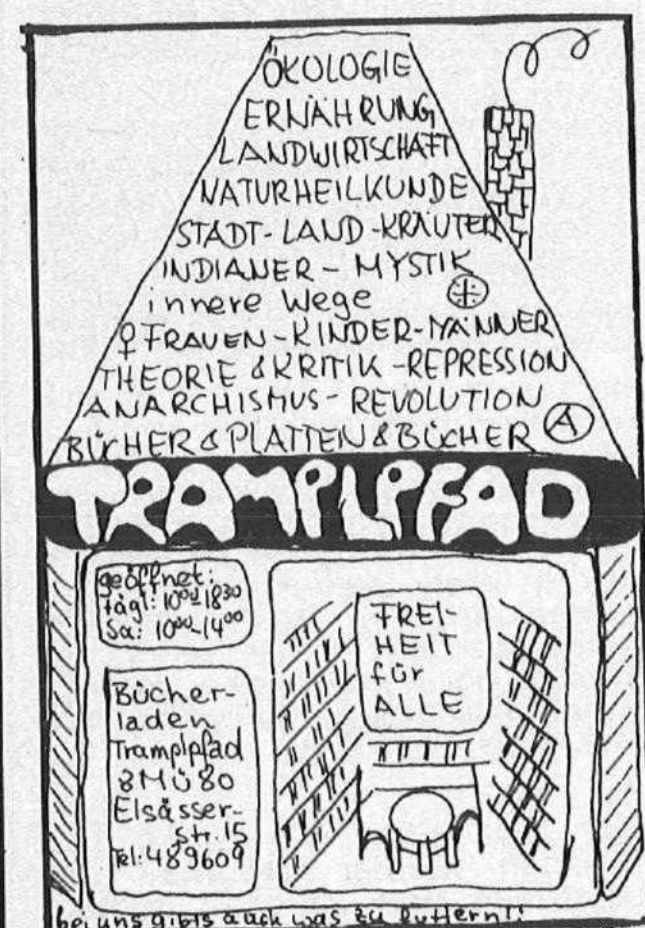 ÖKOLOGIE
ERNÄHRUNG
LANDWIRTSCHAFT
NATURHEILKUNDE
STADT-LAND-KRÄUTER
INDIANER - MYSTIK
innere Wege
♀ FRAUEN-KINDER-MÄNNER
THEORIE & KRITIK - REPRESSION
ANARCHISMUS - REVOLUTION
BÜCHER & PLATTEN & BÜCHER Ⓐ
TRAMPLPFAD
geöffnet:
tägl: 10⁰⁰-18³⁰
Sa: 10⁰⁰-14⁰⁰
Bücher-
laden
Tramplpfad
8 MÜ 80
Elsässer-
str. 15
Tel: 489609
FREI-
HEIT
für
ALLE
bei uns gibts auch was zu futtern!!